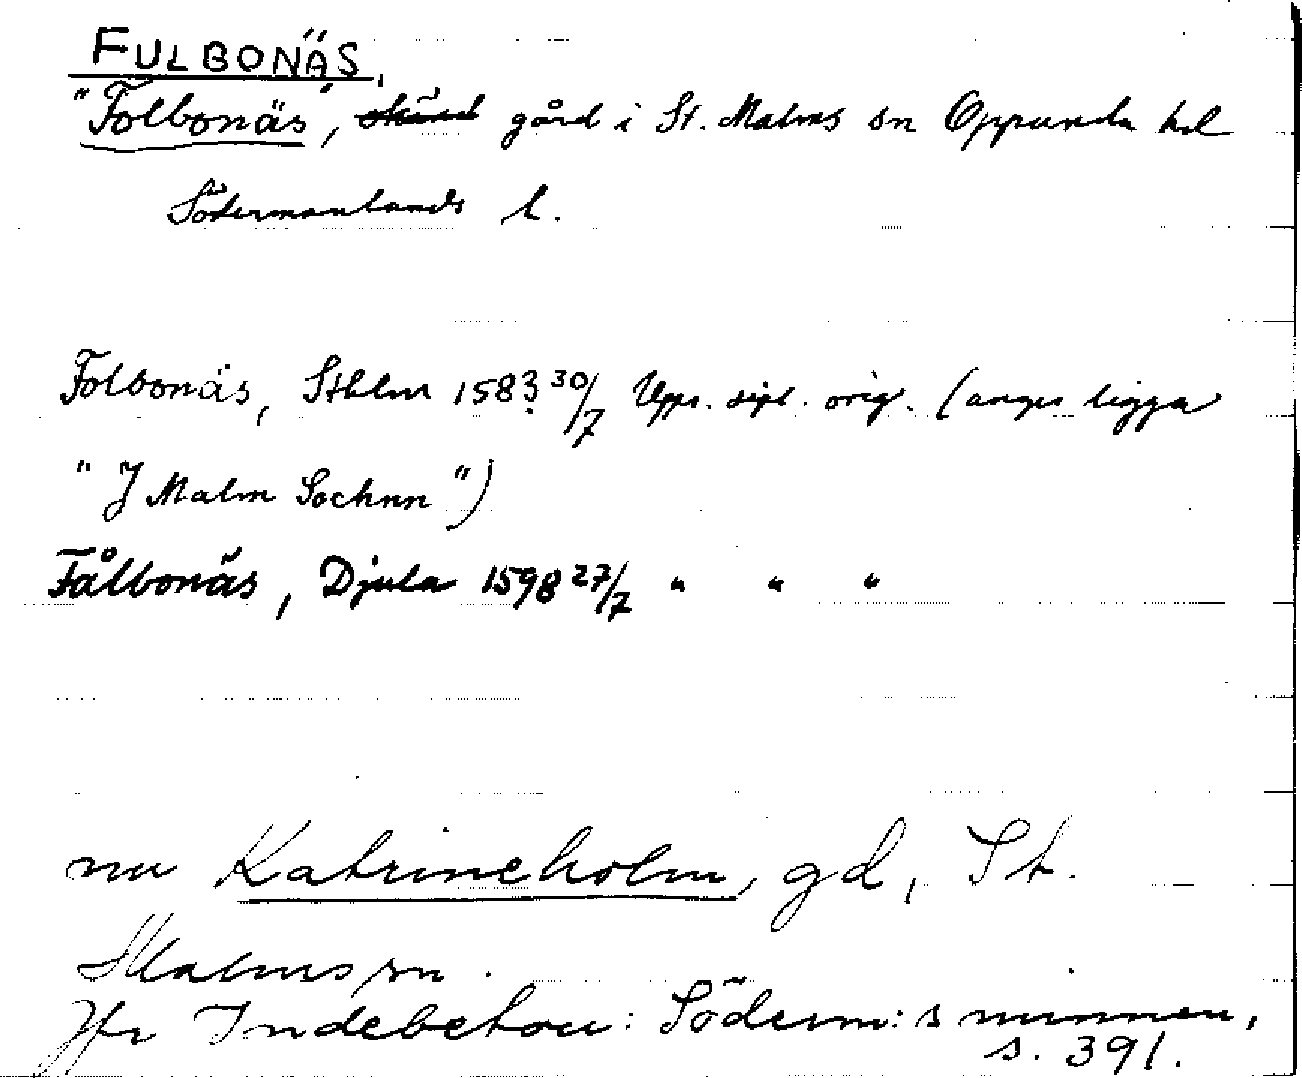 FULBONÄS.
"Folbonäs", gård i St. Malms sn Oppunda hd
Södermanlands l.
Folbonäs, Sthlm 1583 30/7 Upps. dipl. orig. (anges ligga
" J Malm Sochnn ")
Fålbonäs, Djula 1598 27/7 " " "
nu Katrineholm, gd, St.
Malms sn.
Jfr Indebetou: Söderm:s minnen,
s. 391.